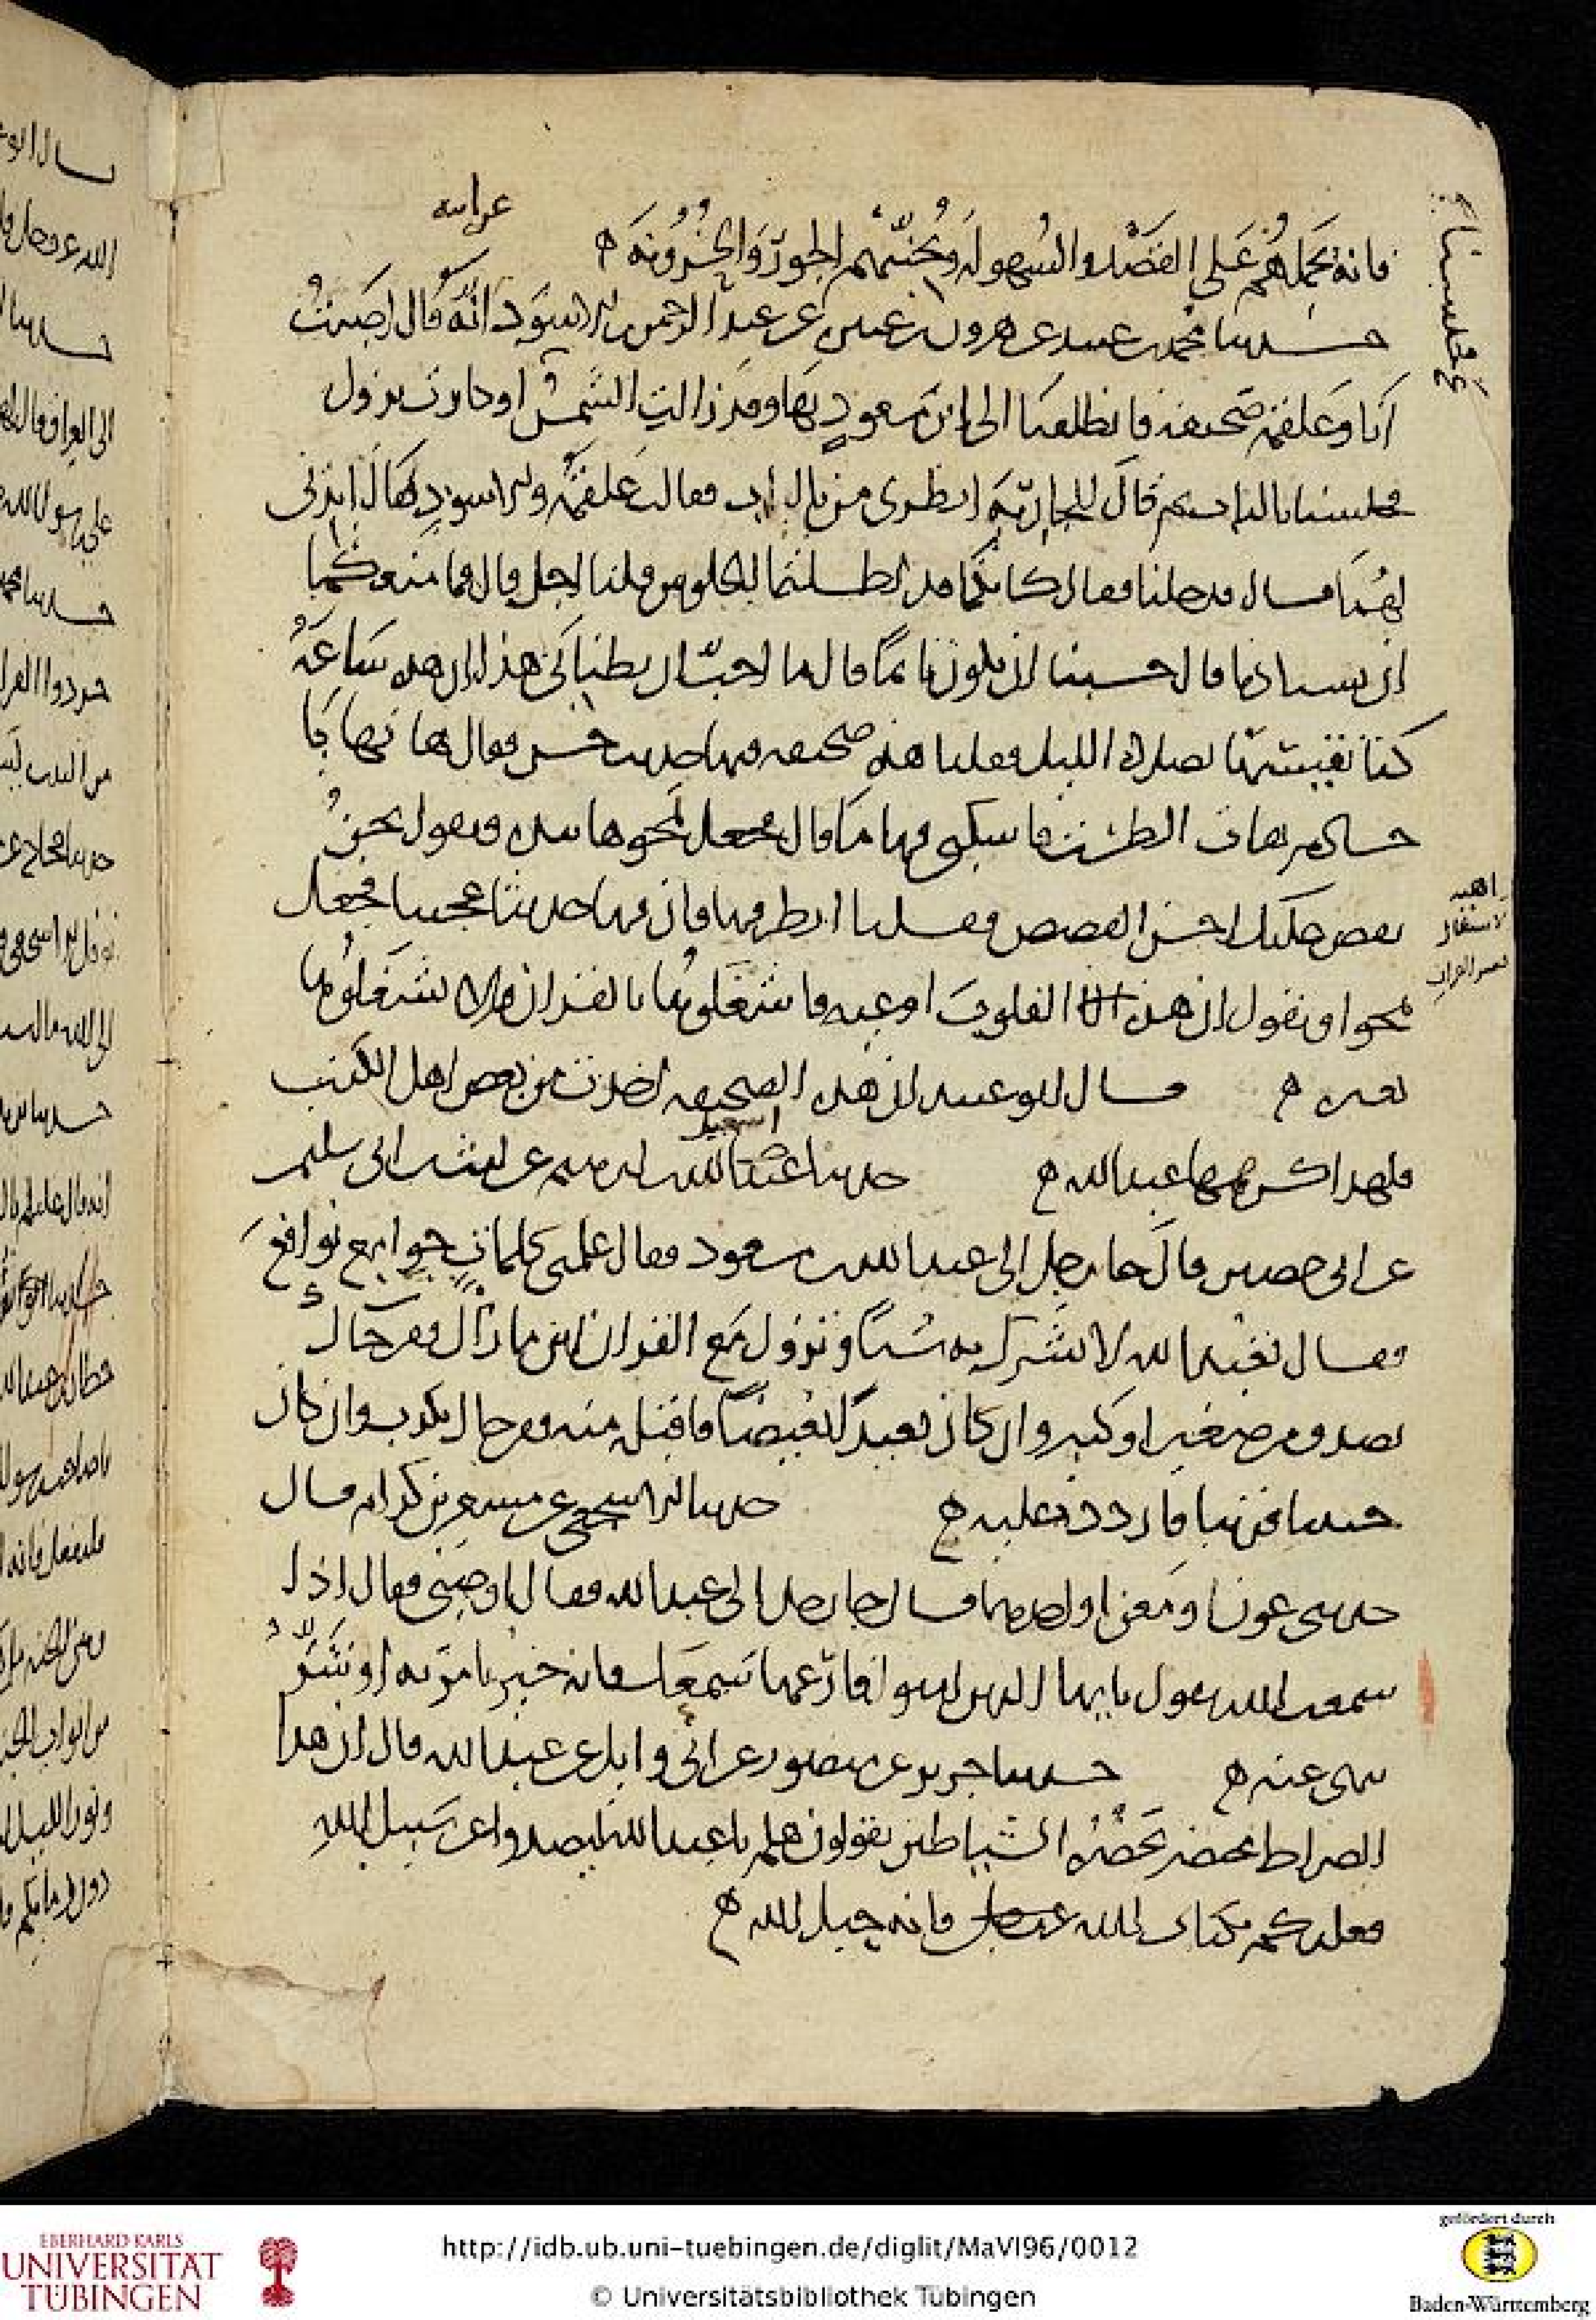 عن ابيه
فانه يحملهم على القصد والسهولة ويجنبهم الجور والحزونة ه
حدثنا محمد بن عبيد عن هرون بن عنترة عن عبد الرحمن بن الاسود انه قال اصبت
انا وعلقمة صحيفة فانطلقنا الى ابن مسعود بها وقد زالت الشمس او كادت تزول
فجلسنا بالباب ثم قال للجارية انظري من بالباب فقالت علقمة والاسود فقال ائذني
لهما قال فدخلنا فقال كانكما قد اطلتما الجلوس قلنا اجل قال فما منعكما
ان تستاذنا قال حسبنا ان تكون نائما قال ما احب ان تظنا بي هذا ان هذه ساعة
كنا نقيسها بصلاة الليل فقلنا هذه صحيفة فيها حديث حسن فقال هاتها يا
خادم هات الطست فاسكبي فيها ما قال فجعل يمحوها بيده ويقول نحن
نقص عليك احسن القصص فقلنا انظر فيها فان فيها حديثا عجيبا فجعل
يمحوا ويقول ان هذه القلوب اوعية فاشغلوها بالقران ولا تشغلوها
بغيره ه قال ابو عبيد ان هذه الصحيفة اخذت من بعض اهل الكتب
فلهذا كرهها عبد الله ه حدثنا اسمعيل بن ابرهيم عن ليث بن ابي سليم
عن ابي حصين قال جاء رجل الى عبد الله بن مسعود فقال علمني كلمات جوامع نوافع
فقال تعبد الله لا تشرك به شيئا وتزول مع القران اين ما زال ومن جاك
بصدق من صغير او كبير وان كان بعيدا بغيضا فاقبله منه ومن جاك بكذب وان كان
حبيبا قريبا فاردده عليه ه حدثنا الاشجعي عن مسعر بن كدام قال
حدثني عون او معن او احدهما قال جاء رجل الى عبد الله فقال اوصني فقال اذا
سمعت الله يقول يايها الذين امنوا فارعها سمعك فانه خير يامر به او شر
ينهى عنه ه حدثنا جرير عن منصور عن ابي وايل عن عبد الله قال ان هذا
الصراط محتضر تحضره الشياطين يقولون هلم يا عبد الله ليصدوا عن سبيل الله
فعليكم بكتاب الله فانه حبل الله ه
http://idb.ub.uni-tuebingen.de/diglit/MaVI96/0012
© Universitätsbibliothek Tübingen
EBERHARD KARLS
UNIVERSITÄT
TÜBINGEN
gefördert durch
Baden-Württemberg